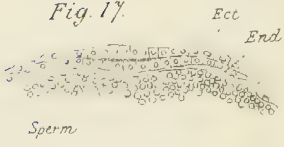 Fig. 17.
Ect
End
Sperm